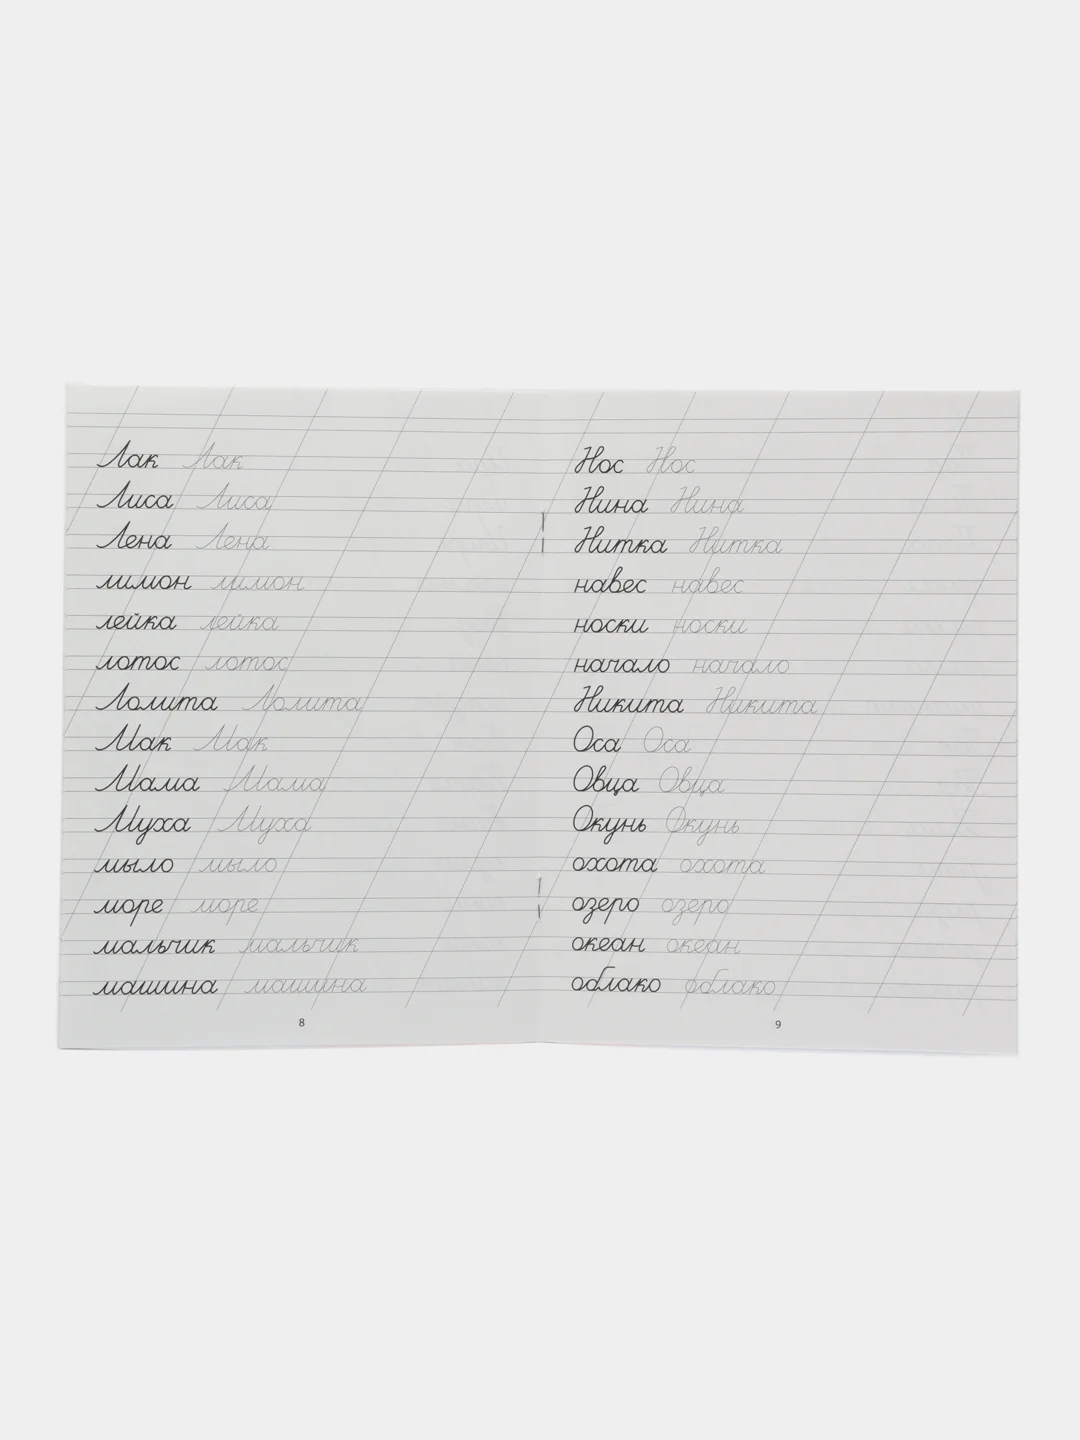 Лак Лак
Лиса Лиса
Лена Лена
лимон лимон
лейка лейка
лотос лотос
Лолита Лолита
Мак Мак
Мама Мама
Муха Муха
мыло мыло
море море
мальчик мальчик
машина машина
8
Нос Нос
Нина Нина
Нитка Нитка
навес навес
носки носки
начало начало
Никита Никита
Оса Оса
Овца Овца
Окунь Окунь
охота охота
озеро озеро
океан океан
облако облако
9